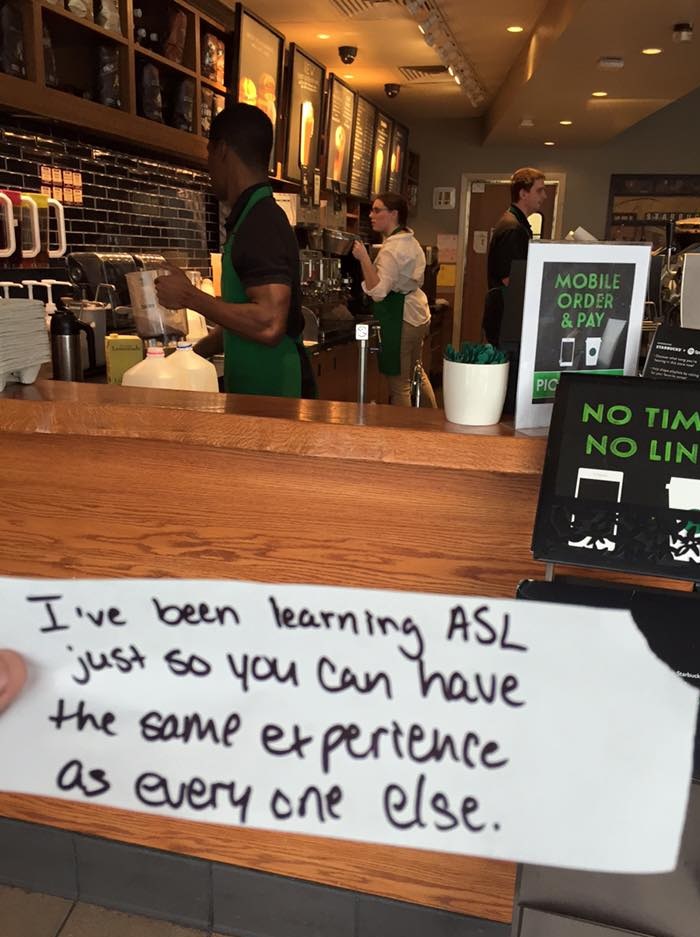 MOBILE
ORDER
& PAY
PIC
NO TIM
NO LIN
I've been learning ASL
just so you can have
the same experience
as every one else.